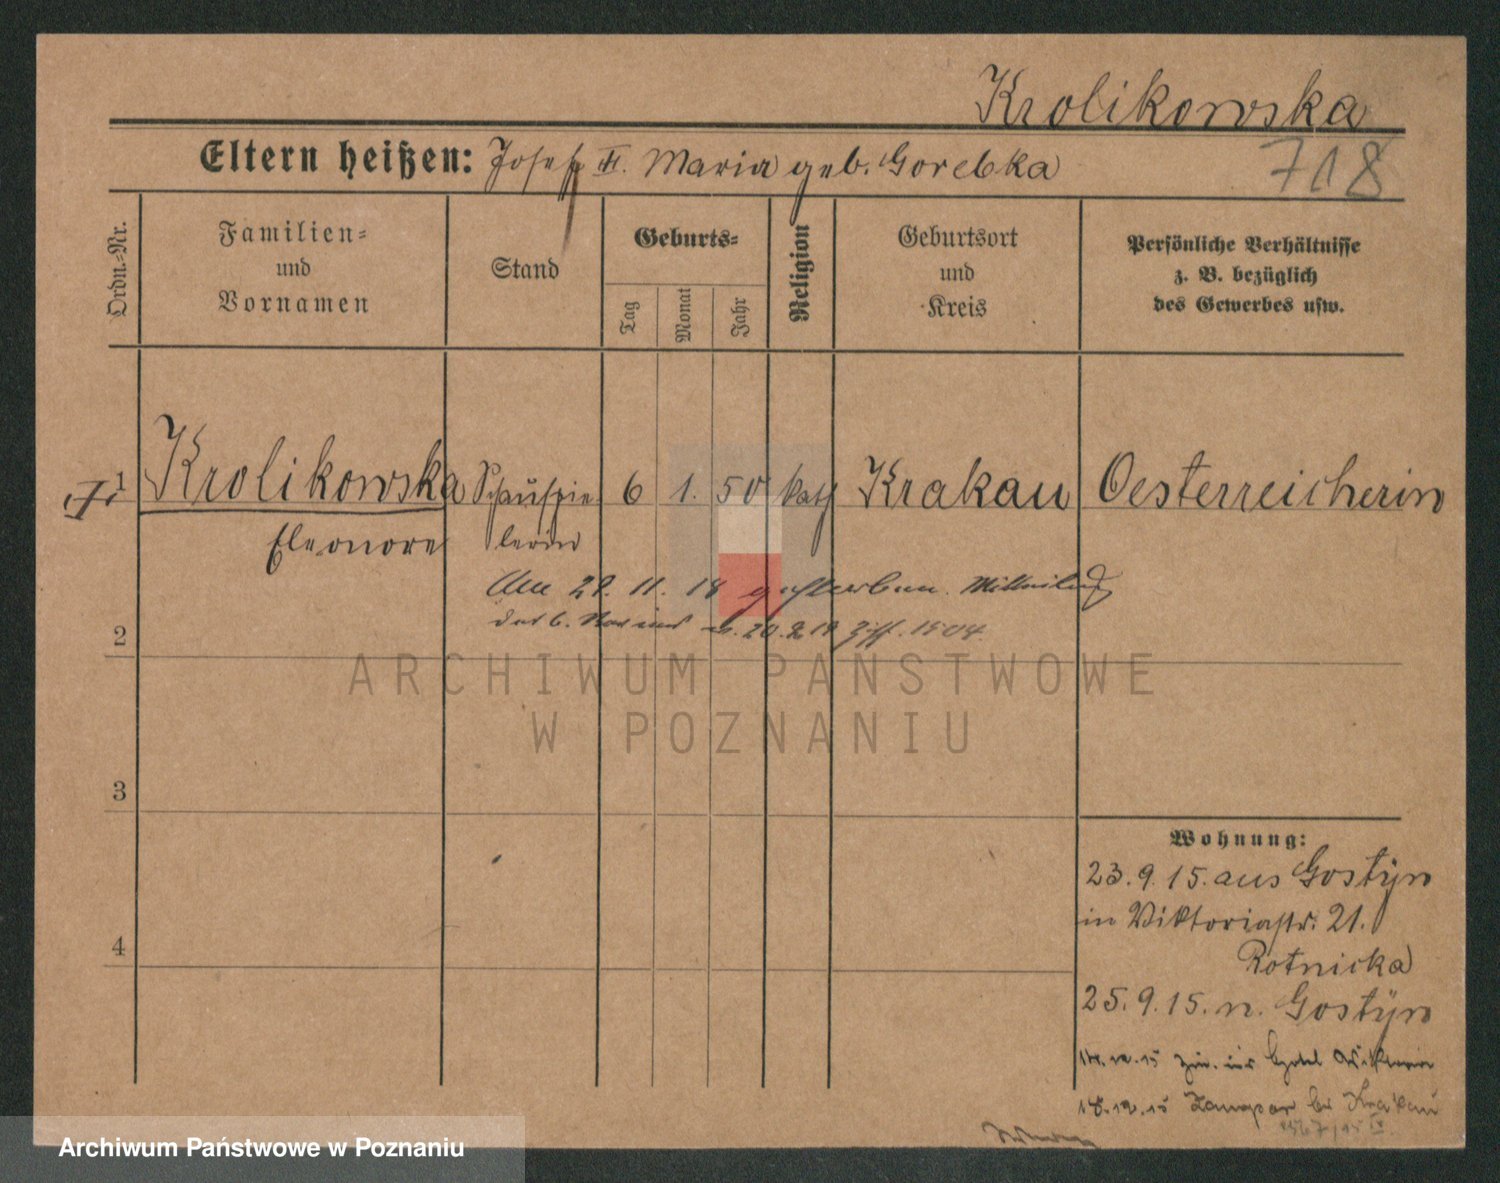 Krolikowska
Eltern heißen: Josef u. Maria geb. Gorebka
718
Ordn.-Nr.
Familien-
und
Vornamen
Stand
Geburts-
Tag
Monat
Jahr
Religion
Geburtsort
und
Kreis
Persönliche Verhältnisse
z. B. bezüglich
des Gewerbes usw.
1 Krolikowska Schauspie- 6 1. 50 kath Krakau Oesterreicherin
Eleonore lerin
Am 29. 11. 18 gestorben. Mitteilung
2
des 6. Reviers v. 20.2.19 Ziff. 1504
ARCHIWUM PAŃSTWOWE
W POZNANIU
3
4
Wohnung:
23.9.15. aus Gostÿn
in Viktoriastr. 21.
Rotnicka
25.9.15. n. Gostÿn
14.12.15 Hotel
18.12.15 bei Krakau
Archiwum Państwowe w Poznaniu